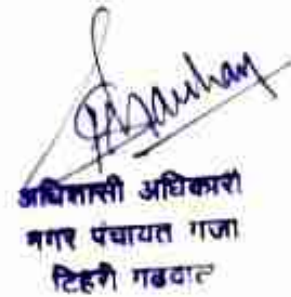 अधिशासी अधिकारी
नगर पंचायत गजा
टिहरी गढवाल